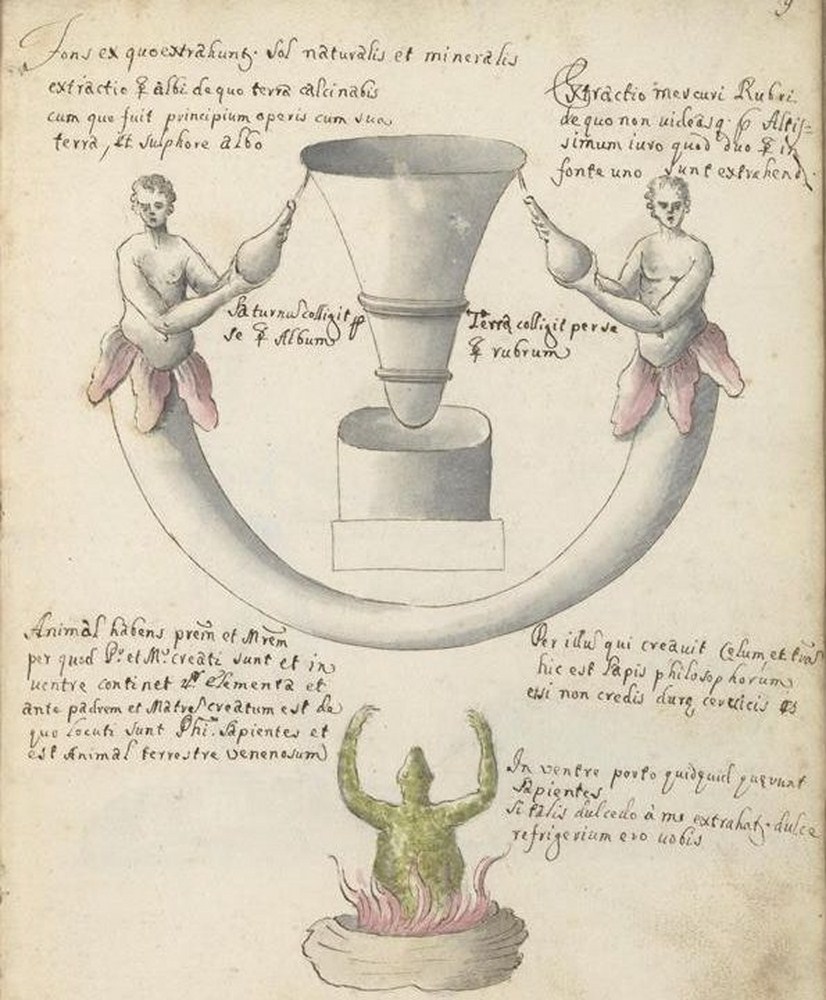 9
Fons ex quo extrahunt⁊ Sol naturalis et mineralis
extractio ☿ albi de quo terra calcinabis
cum quo fuit principium operis cum sua
terra, et sulphore albo
Extractio mercuri Rubri
de quo non uideas q; Altis=
simum iuro quod duo ☿ in
fonte uno sunt extrahend
Saturnus colligit p
se ☿ Album
Terra colligit per se
☿ rubrum
Animal habens prem et Mrem
per quod Pr et Mr creati sunt et in
uentre continet 4 Elementa et
ante padrem et Matre creatum est de
quo locuti sunt Phi. Sapientes et
est Animal terrestre venenosum
Per illu qui creauit Celum et
hic est lapis philosophorum
etsi non credis dure ceruicis es
In ventre porto quidquid querunt
Sapientes
Si talis dulcedo à me extrahat⁊ dulce
refrigerium ero uobis